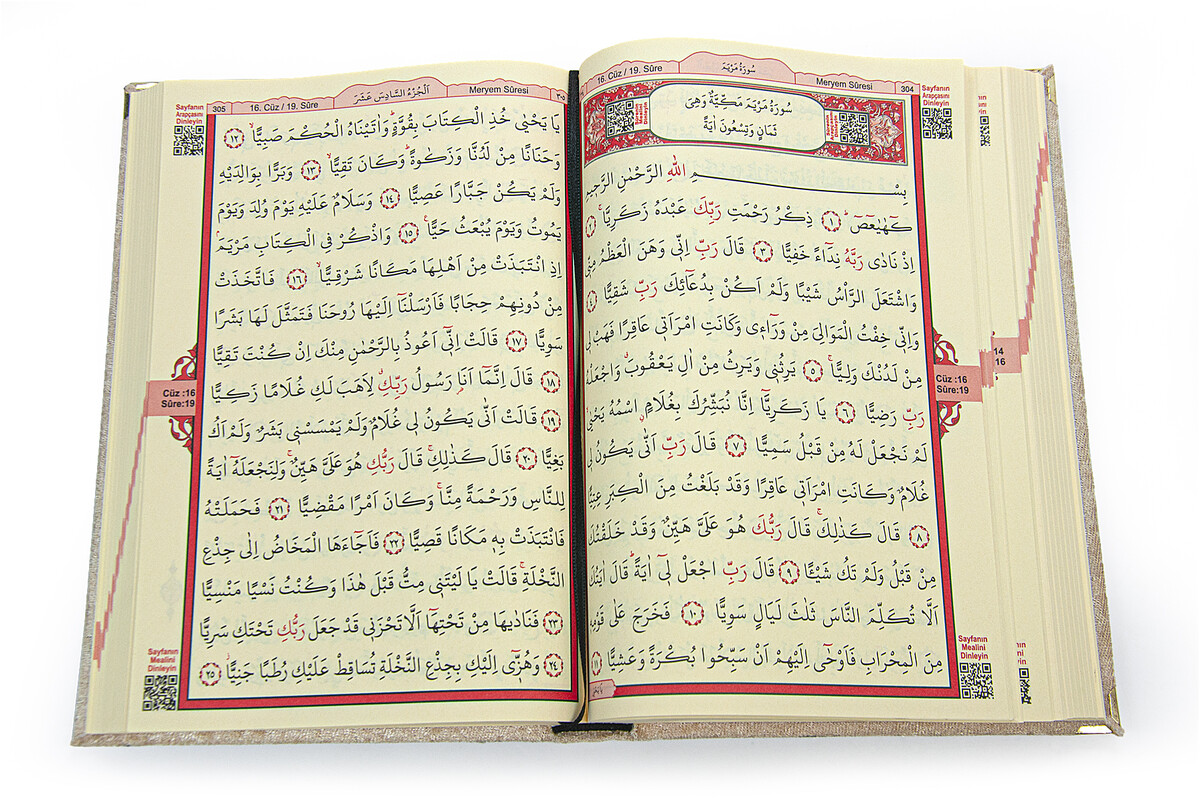 16. Cüz / 19. Sûre
سُورَةُ مَرْيَمَ
Meryem Sûresi
304
سُورَةُ مَرْيَمَ مَكِّيَّةٌ وَهِيَ
ثَمَانٍ وَتِسْعُونَ اٰيَةً
بِسْــــــمِ اللّٰهِ الرَّحْمٰنِ الرَّحِيمِ
كٓهٰيٰعٓصٓ ۚ ﴿١﴾ ذِكْرُ رَحْمَتِ رَبِّكَ عَبْدَهُ زَكَرِيَّاۚ ﴿٢﴾
اِذْ نَادٰى رَبَّهُ نِدَٓاءً خَفِيًّا ﴿٣﴾ قَالَ رَبِّ اِنّٖي وَهَنَ الْعَظْمُ مِنّٖي
وَاشْتَعَلَ الرَّأْسُ شَيْبًا وَلَمْ اَكُنْ بِدُعَٓائِكَ رَبِّ شَقِيًّا ﴿٤﴾
وَاِنّٖي خِفْتُ الْمَوَالِيَ مِنْ وَرَٓاءٖي وَكَانَتِ امْرَاَتٖي عَاقِرًا فَهَبْ لٖي
مِنْ لَدُنْكَ وَلِيًّاۙ ﴿٥﴾ يَرِثُنٖي وَيَرِثُ مِنْ اٰلِ يَعْقُوبَ وَاجْعَلْهُ
رَبِّ رَضِيًّا ﴿٦﴾ يَا زَكَرِيَّٓا اِنَّا نُبَشِّرُكَ بِغُلَامٍۨ اسْمُهُ يَحْيٰىۙ
لَمْ نَجْعَلْ لَهُ مِنْ قَبْلُ سَمِيًّا ﴿٧﴾ قَالَ رَبِّ اَنّٰى يَكُونُ لٖي
غُلَامٌ وَكَانَتِ امْرَاَتٖي عَاقِرًا وَقَدْ بَلَغْتُ مِنَ الْكِبَرِ عِتِيًّا
﴿٨﴾ قَالَ كَذٰلِكَۚ قَالَ رَبُّكَ هُوَ عَلَيَّ هَيِّنٌ وَقَدْ خَلَقْتُكَ
مِنْ قَبْلُ وَلَمْ تَكُ شَيْـًٔا ﴿٩﴾ قَالَ رَبِّ اجْعَلْ لٖٓي اٰيَةًؕ قَالَ اٰيَتُكَ
اَلَّا تُكَلِّمَ النَّاسَ ثَلٰثَ لَيَالٍ سَوِيًّا ﴿١٠﴾ فَخَرَجَ عَلٰى قَوْمِهٖ
مِنَ الْمِحْرَابِ فَاَوْحٰٓى اِلَيْهِمْ اَنْ سَبِّحُوا بُكْرَةً وَعَشِيًّا ﴿١١﴾
Sayfanın
Arapçasını
Dinleyin
Cüz :16
Sûre:19
Sayfanın
Mealini
Dinleyin
14
16
305
16. Cüz / 19. Sûre
اَلْجُزْءُ السَّادِسَ عَشَرَ
Meryem Sûresi
٣٠٥
يَا يَحْيٰى خُذِ الْكِتَابَ بِقُوَّةٍؕ وَاٰتَيْنَاهُ الْحُكْمَ صَبِيًّاۙ ﴿١٢﴾
وَحَنَانًا مِنْ لَدُنَّا وَزَكٰوةًؕ وَكَانَ تَقِيًّاۙ ﴿١٣﴾ وَبَرًّا بِوَالِدَيْهِ
وَلَمْ يَكُنْ جَبَّارًا عَصِيًّا ﴿١٤﴾ وَسَلَامٌ عَلَيْهِ يَوْمَ وُلِدَ وَيَوْمَ
يَمُوتُ وَيَوْمَ يُبْعَثُ حَيًّاۚ ﴿١٥﴾ وَاذْكُرْ فِي الْكِتَابِ مَرْيَمَۢ
اِذِ انْتَبَذَتْ مِنْ اَهْلِهَا مَكَانًا شَرْقِيًّاۙ ﴿١٦﴾ فَاتَّخَذَتْ
مِنْ دُونِهِمْ حِجَابًا فَاَرْسَلْنَٓا اِلَيْهَا رُوحَنَا فَتَمَثَّلَ لَهَا بَشَرًا
سَوِيًّا ﴿١٧﴾ قَالَتْ اِنّٖٓي اَعُوذُ بِالرَّحْمٰنِ مِنْكَ اِنْ كُنْتَ تَقِيًّا
﴿١٨﴾ قَالَ اِنَّمَٓا اَنَا۬ رَسُولُ رَبِّكِۗ لِاَهَبَ لَكِ غُلَامًا زَكِيًّا
﴿١٩﴾ قَالَتْ اَنّٰى يَكُونُ لٖي غُلَامٌ وَلَمْ يَمْسَسْنٖي بَشَرٌ وَلَمْ اَكُ
بَغِيًّا ﴿٢٠﴾ قَالَ كَذٰلِكِۚ قَالَ رَبُّكِ هُوَ عَلَيَّ هَيِّنٌۚ وَلِنَجْعَلَهُٓ اٰيَةً
لِلنَّاسِ وَرَحْمَةً مِنَّاۚ وَكَانَ اَمْرًا مَقْضِيًّا ﴿٢١﴾ فَحَمَلَتْهُ
فَانْتَبَذَتْ بِهٖ مَكَانًا قَصِيًّا ﴿٢٢﴾ فَاَجَٓاءَهَا الْمَخَاضُ اِلٰى جِذْعِ
النَّخْلَةِۚ قَالَتْ يَا لَيْتَنٖي مِتُّ قَبْلَ هٰذَا وَكُنْتُ نَسْيًا مَنْسِيًّا
﴿٢٣﴾ فَنَادٰيهَا مِنْ تَحْتِهَٓا اَلَّا تَحْزَنٖي قَدْ جَعَلَ رَبُّكِ تَحْتَكِ سَرِيًّا
﴿٢٤﴾ وَهُزّٖٓي اِلَيْكِ بِجِذْعِ النَّخْلَةِ تُسَاقِطْ عَلَيْكِ رُطَبًا جَنِيًّاۘ ﴿٢٥﴾
Sayfanın
Arapçasını
Dinleyin
Cüz :16
Sûre:19
Sayfanın
Mealini
Dinleyin